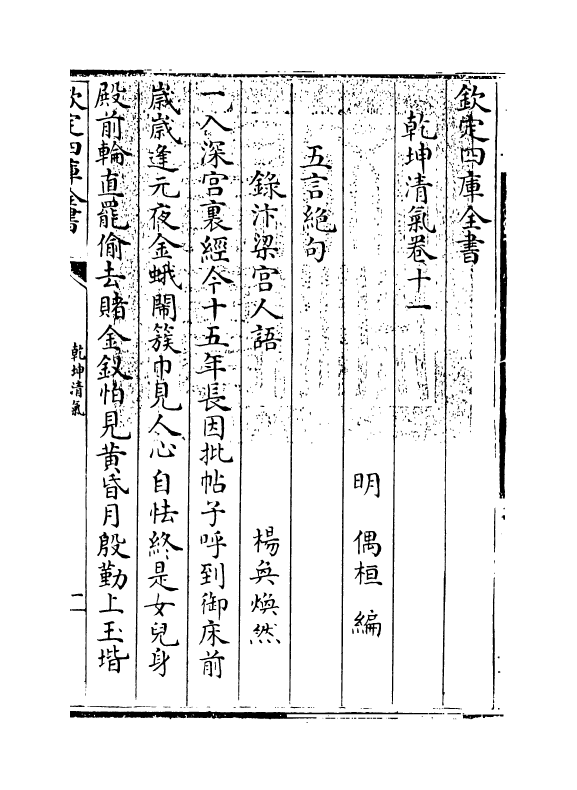 欽定四庫全書
乾坤清氣卷十一
明　偶桓　編
五言絶句
錄汴梁宮人語　楊奐煥然
一入深宮裏經今十五年長因批帖子呼到御床前
歲歲逢元夜金蛾鬧簇巾見人心自怯終是女兒身
殿前輪直罷偷去賭金釵怕見黃昏月殷勤上玉堦
欽定四庫全書
乾坤清氣